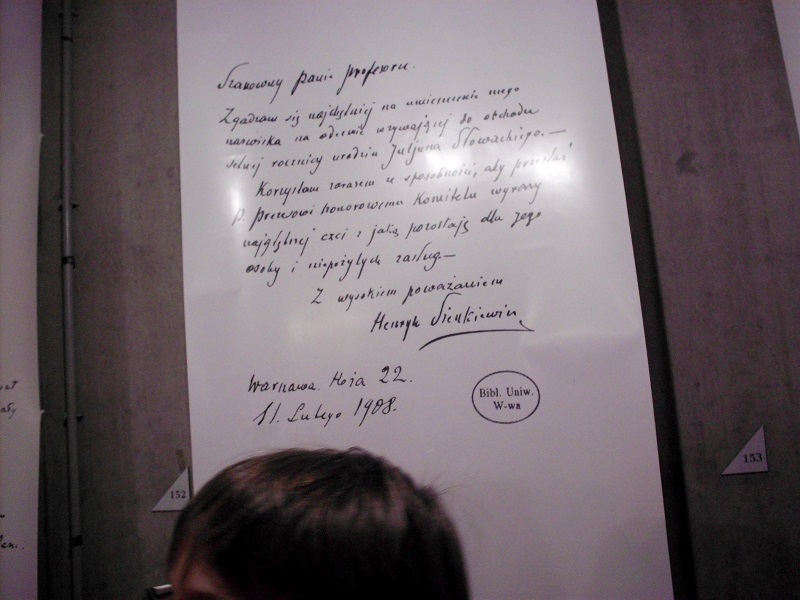 Szanowny Panie Profesorze.
Zgadzam się najchętniej na umieszczenie mego
nazwiska na odezwie wzywającej do obchodu
setnej rocznicy urodzin Juljusza Słowackiego.—
Korzystam zarazem z sposobności, aby przesłać
P. Prezesowi honorowemu Komitetu wyrazy
najgłębszej czci z jaką pozostaję dla jego
osoby i niepożytych zasług—
Z wysokiem poważaniem
Henryk Sienkiewicz
Warszawa. Hoża 22.
11. Lutego 1908.
Bibl. Uniw.
W-wa
152
153